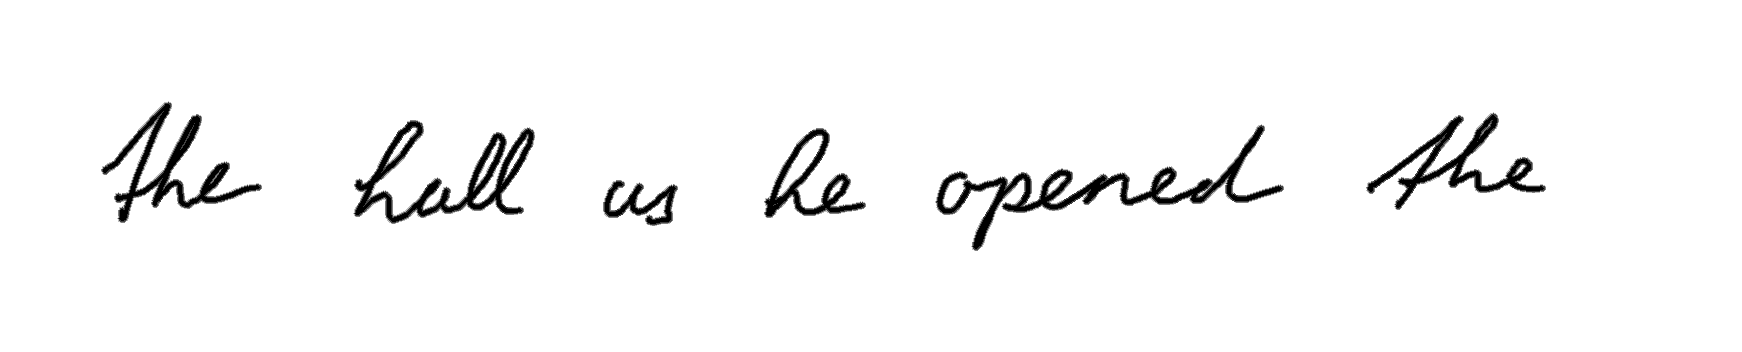 the hall as he opened the